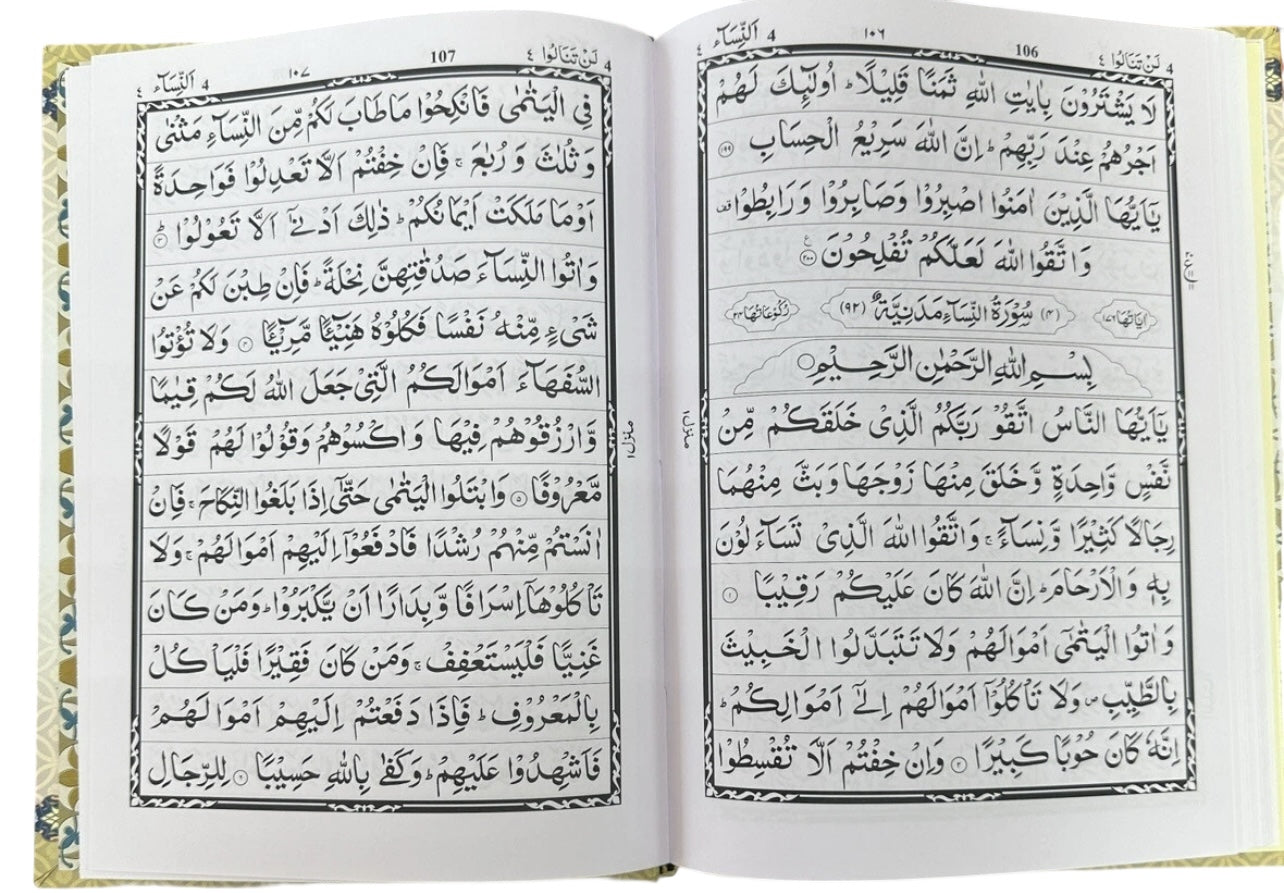 ٤ اَلنِّسَآء 4 ١٠٦ 106 لَنْ تَنَالُوْا ٤ 4
لَا يَشْتَرُوْنَ بِاٰيٰتِ اللّٰهِ ثَمَنًا قَلِيْلًا ؕ اُولٰٓئِكَ لَهُمْ
اَجْرُهُمْ عِنْدَ رَبِّهِمْ ؕ اِنَّ اللّٰهَ سَرِيْعُ الْحِسَابِ ۝١٩٩
يٰۤاَيُّهَا الَّذِيْنَ اٰمَنُوا اصْبِرُوْا وَصَابِرُوْا وَرَابِطُوْا قف
وَاتَّقُوا اللّٰهَ لَعَلَّكُمْ تُفْلِحُوْنَ ۝٢٠٠ ع
اٰيَاتُهَا ١٧٦ (٤) سُوْرَةُ النِّسَآءِ مَدَنِيَّةٌ (٩٢) رُكُوْعَاتُهَا ٢٤
بِسْمِ اللّٰهِ الرَّحْمٰنِ الرَّحِيْمِ
يٰۤاَيُّهَا النَّاسُ اتَّقُوْا رَبَّكُمُ الَّذِيْ خَلَقَكُمْ مِّنْ
نَّفْسٍ وَّاحِدَةٍ وَّخَلَقَ مِنْهَا زَوْجَهَا وَبَثَّ مِنْهُمَا
رِجَالًا كَثِيْرًا وَّنِسَآءً ۚ وَاتَّقُوا اللّٰهَ الَّذِيْ تَسَآءَلُوْنَ
بِهٖ وَالْاَرْحَامَ ؕ اِنَّ اللّٰهَ كَانَ عَلَيْكُمْ رَقِيْبًا ۝١
وَاٰتُوا الْيَتٰمٰۤى اَمْوَالَهُمْ وَلَا تَتَبَدَّلُوا الْخَبِيْثَ
بِالطَّيِّبِ ۪ وَلَا تَاْكُلُوْۤا اَمْوَالَهُمْ اِلٰٓى اَمْوَالِكُمْ ؕ
اِنَّهٗ كَانَ حُوْبًا كَبِيْرًا ۝٢ وَاِنْ خِفْتُمْ اَلَّا تُقْسِطُوْا
منزل ١
٤ اَلنِّسَآء 4 ١٠٧ 107 لَنْ تَنَالُوْا ٤ 4
فِي الْيَتٰمٰى فَانْكِحُوْا مَا طَابَ لَكُمْ مِّنَ النِّسَآءِ مَثْنٰى
وَثُلٰثَ وَرُبٰعَ ۚ فَاِنْ خِفْتُمْ اَلَّا تَعْدِلُوْا فَوَاحِدَةً
اَوْ مَا مَلَكَتْ اَيْمَانُكُمْ ؕ ذٰلِكَ اَدْنٰٓى اَلَّا تَعُوْلُوْا ؕ ۝٣
وَاٰتُوا النِّسَآءَ صَدُقٰتِهِنَّ نِحْلَةً ؕ فَاِنْ طِبْنَ لَكُمْ عَنْ
شَيْءٍ مِّنْهُ نَفْسًا فَكُلُوْهُ هَنِيْٓئًا مَّرِيْٓئًا ۝٤ وَلَا تُؤْتُوا
السُّفَهَآءَ اَمْوَالَكُمُ الَّتِيْ جَعَلَ اللّٰهُ لَكُمْ قِيٰمًا
وَّارْزُقُوْهُمْ فِيْهَا وَاكْسُوْهُمْ وَقُوْلُوْا لَهُمْ قَوْلًا
مَّعْرُوْفًا ۝٥ وَابْتَلُوا الْيَتٰمٰى حَتّٰۤى اِذَا بَلَغُوا النِّكَاحَ ۚ فَاِنْ
اٰنَسْتُمْ مِّنْهُمْ رُشْدًا فَادْفَعُوْۤا اِلَيْهِمْ اَمْوَالَهُمْ ۚ وَلَا
تَاْكُلُوْهَاۤ اِسْرَافًا وَّبِدَارًا اَنْ يَّكْبَرُوْا ؕ وَمَنْ كَانَ
غَنِيًّا فَلْيَسْتَعْفِفْ ۚ وَمَنْ كَانَ فَقِيْرًا فَلْيَاْكُلْ
بِالْمَعْرُوْفِ ؕ فَاِذَا دَفَعْتُمْ اِلَيْهِمْ اَمْوَالَهُمْ
فَاَشْهِدُوْا عَلَيْهِمْ ؕ وَكَفٰى بِاللّٰهِ حَسِيْبًا ۝٦ لِلرِّجَالِ
منزل ١